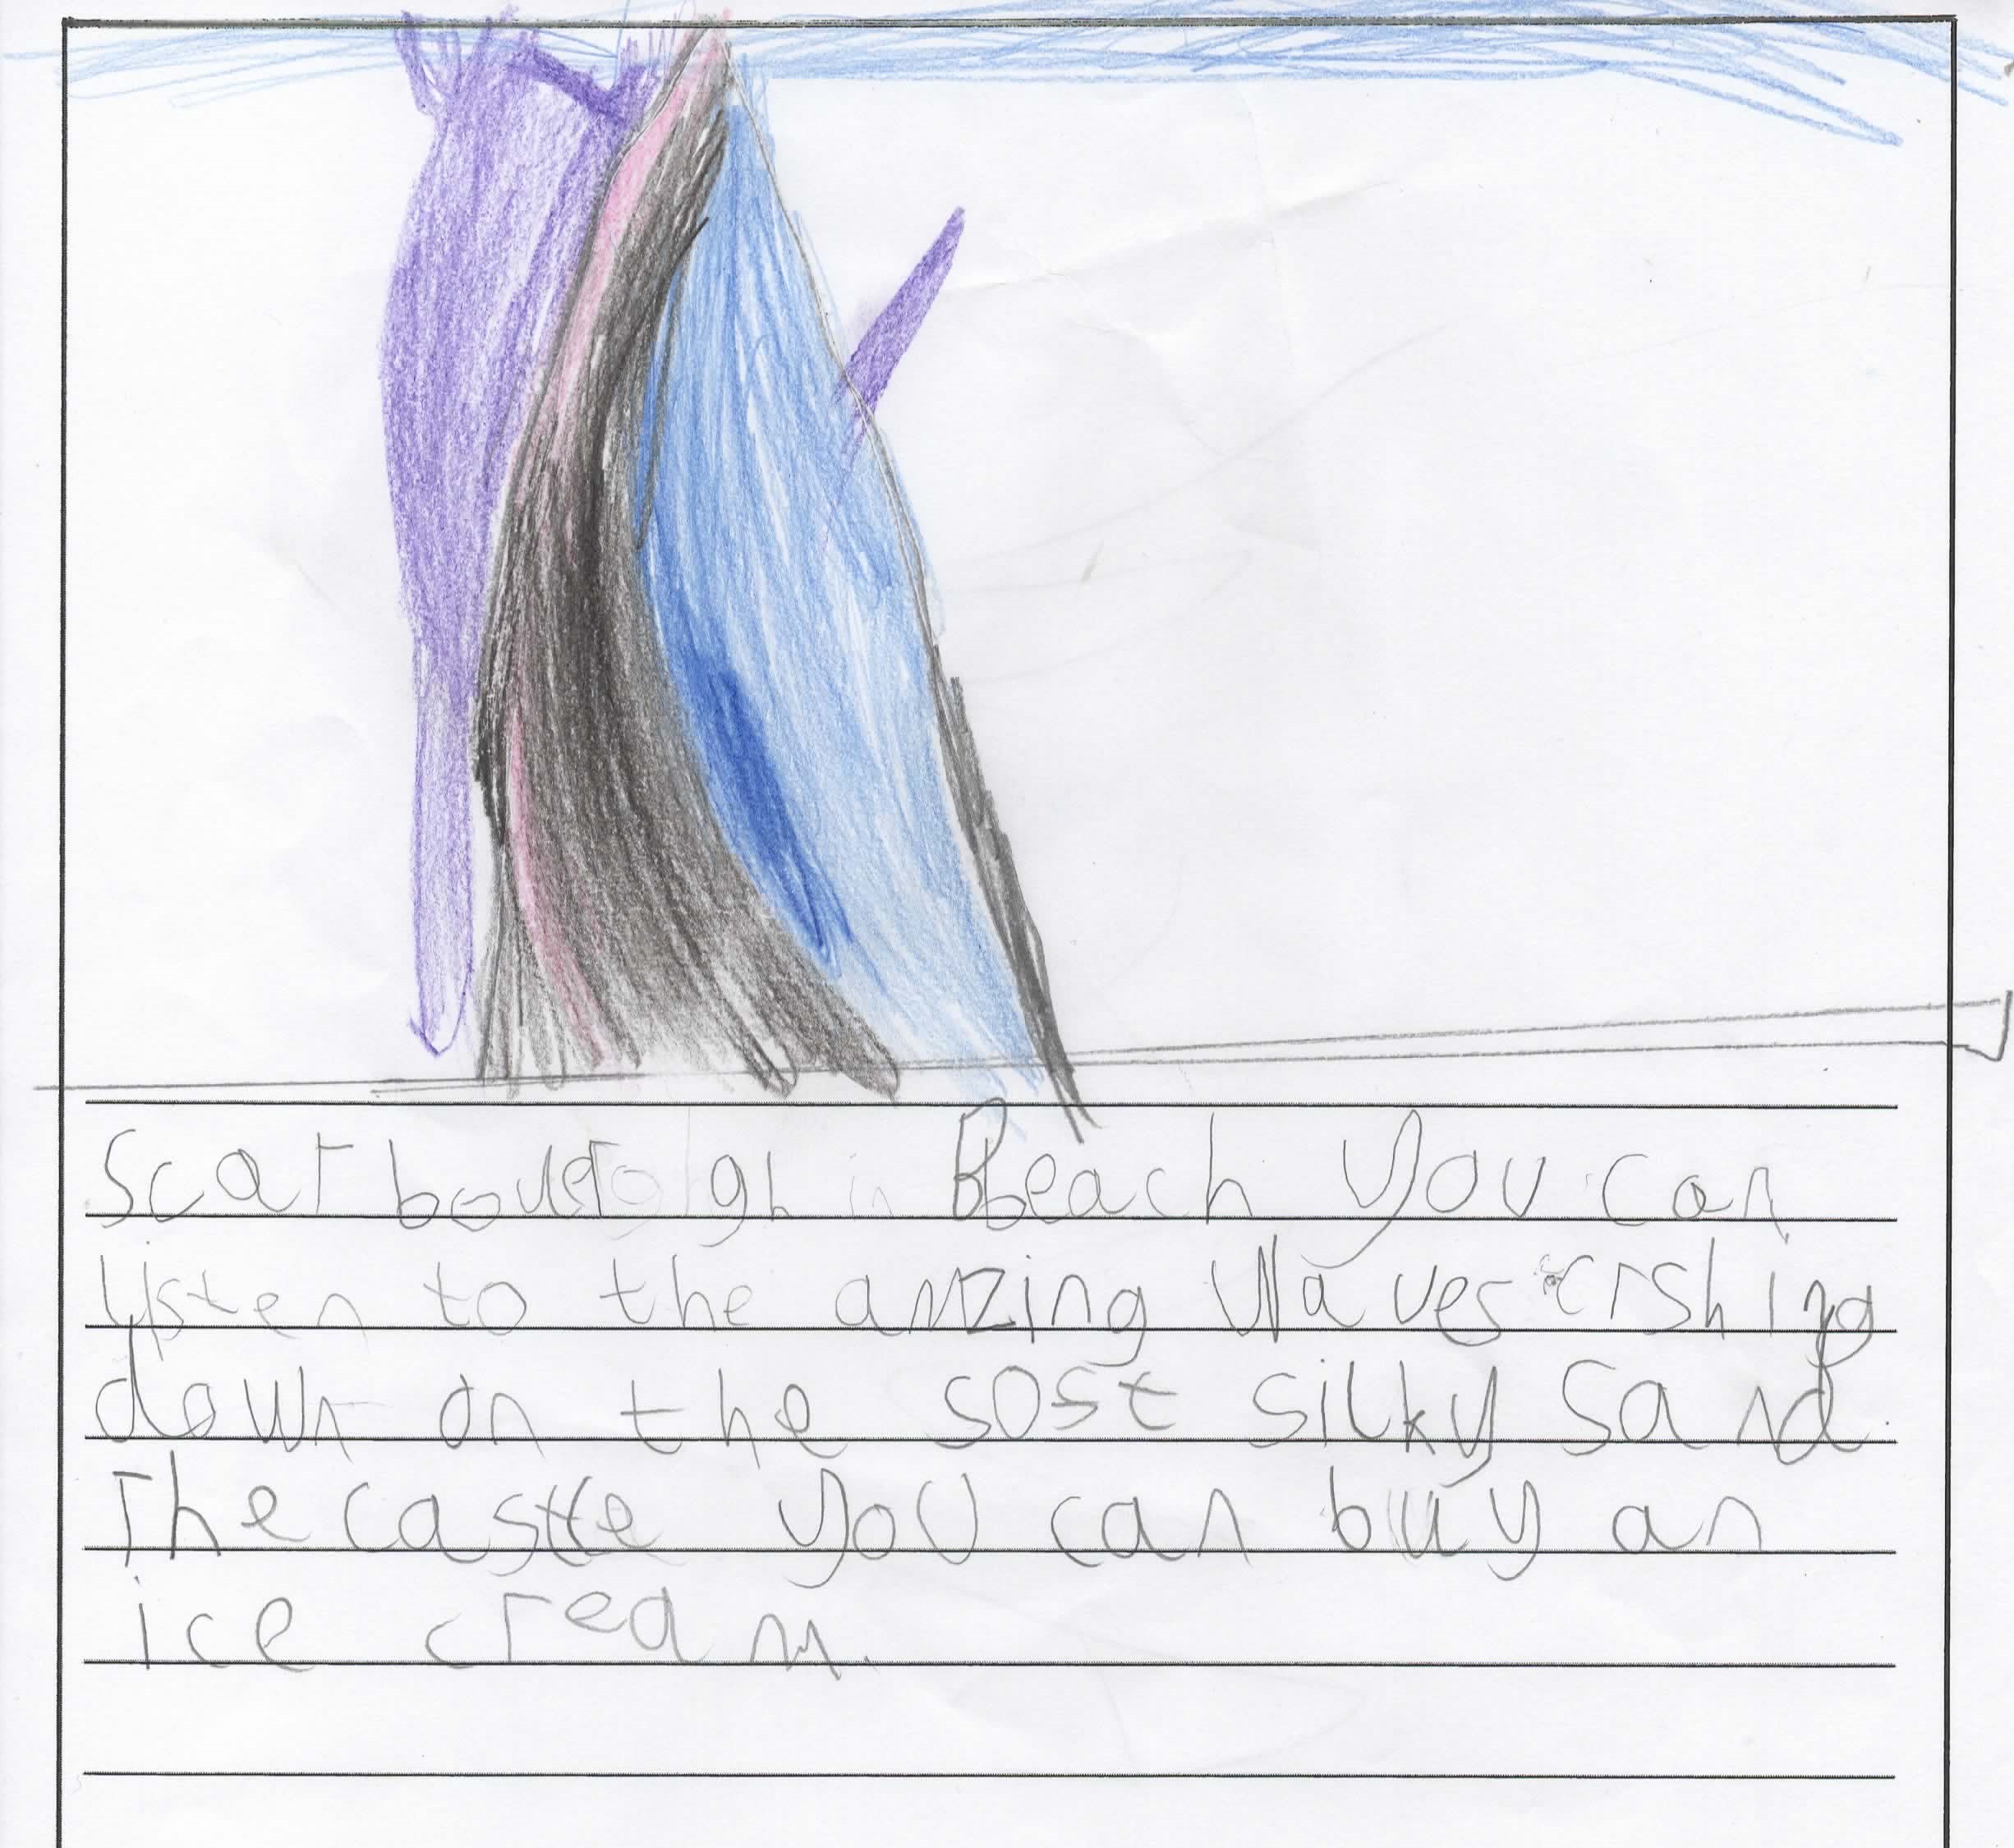 Scarbourogh Beach you can
listen to the amzing Waves crshing
down on the sost silky Sand.
The castle you can buy an
ice cream.